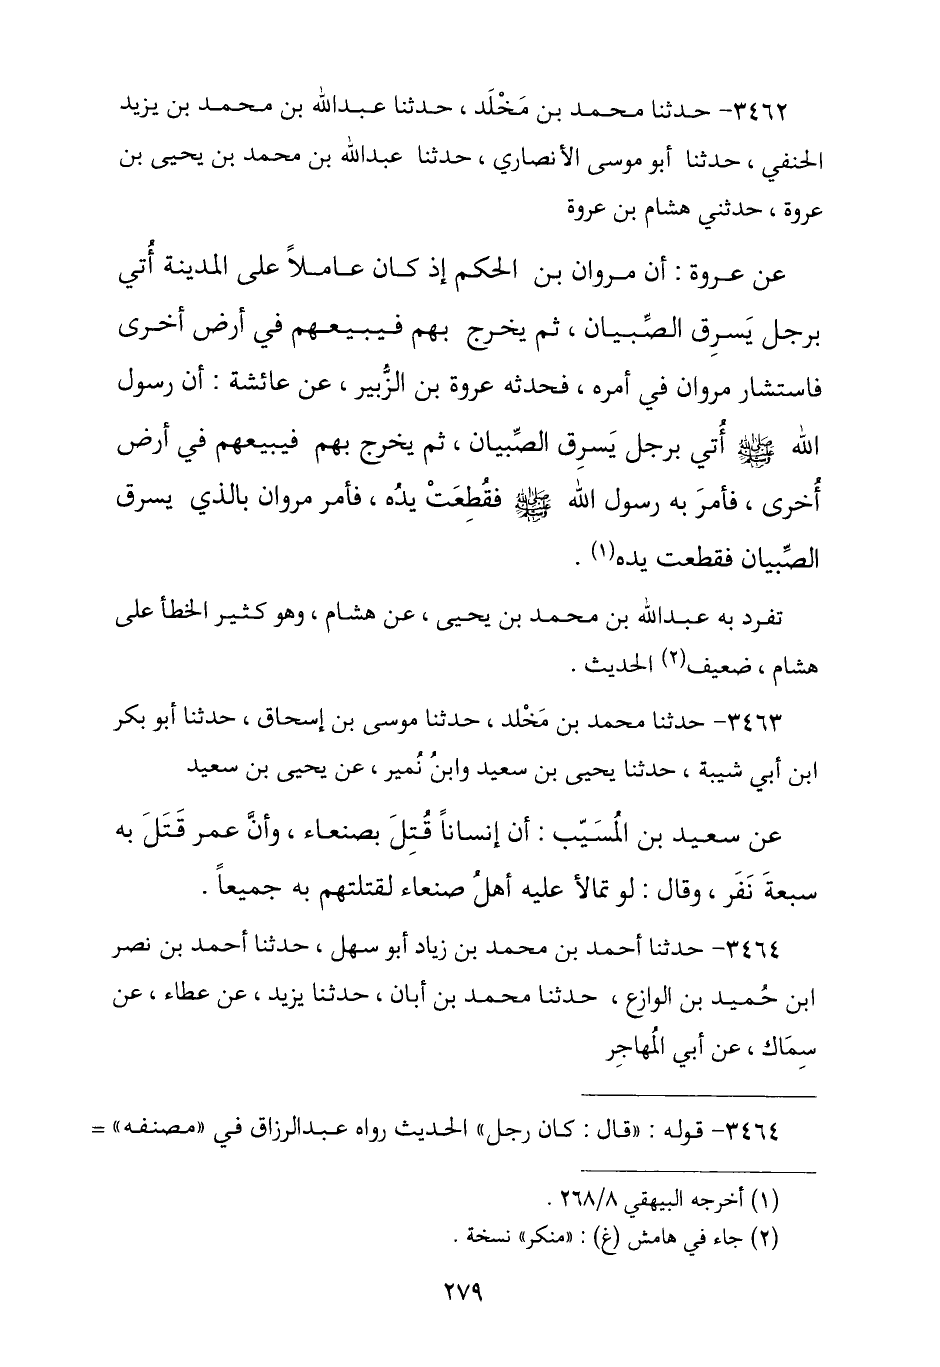 ٣٤٦٢- حدثنا محمد بن مَخْلَد ، حدثنا عبدالله بن محمد بن يزيد
الحنفي ، حدثنا أبو موسى الأنصاري ، حدثنا عبدالله بن محمد بن يحيى بن
عروة ، حدثني هشام بن عروة
عن عروة : أن مروان بن الحكم إذ كان عاملاً على المدينة أُتي
برجل يَسرِق الصِّبيان ، ثم يخرج بهم فيبيعهم في أرض أخرى
فاستشار مروان في أمره ، فحدثه عروة بن الزُّبير ، عن عائشة : أن رسول
الله ﷺ أُتي برجل يَسرِق الصِّبيان ، ثم يخرج بهم فيبيعهم في أرض
أُخرى ، فأمرَ به رسول الله ﷺ فقُطِعَتْ يدُه ، فأمر مروان بالذي يسرق
الصِّبيان فقطعت يده(١) .
تفرد به عبدالله بن محمد بن يحيى ، عن هشام ، وهو كثير الخطأ على
هشام ، ضعيف(٢) الحديث .
٣٤٦٣- حدثنا محمد بن مَخْلد ، حدثنا موسى بن إسحاق ، حدثنا أبو بكر
ابن أبي شيبة ، حدثنا يحيى بن سعيد وابنُ نُمير ، عن يحيى بن سعيد
عن سعيد بن المُسَيّب : أن إنساناً قُتِلَ بصنعاء ، وأنَّ عمر قَتَلَ به
سبعةَ نَفَر ، وقال : لو تمالأ عليه أهلُ صنعاء لقتلتهم به جميعاً .
٣٤٦٤- حدثنا أحمد بن محمد بن زياد أبو سهل ، حدثنا أحمد بن نصر
ابن حُميد بن الوازع ، حدثنا محمد بن أبان ، حدثنا يزيد ، عن عطاء ، عن
سِمَاك ، عن أبي المُهاجِر
٣٤٦٤- قوله : «قال : كان رجل» الحديث رواه عبدالرزاق في «مصنفه» =
(١) أخرجه البيهقي ٢٦٨/٨ .
(٢) جاء في هامش (غ) : «منكر» نسخة .
٢٧٩